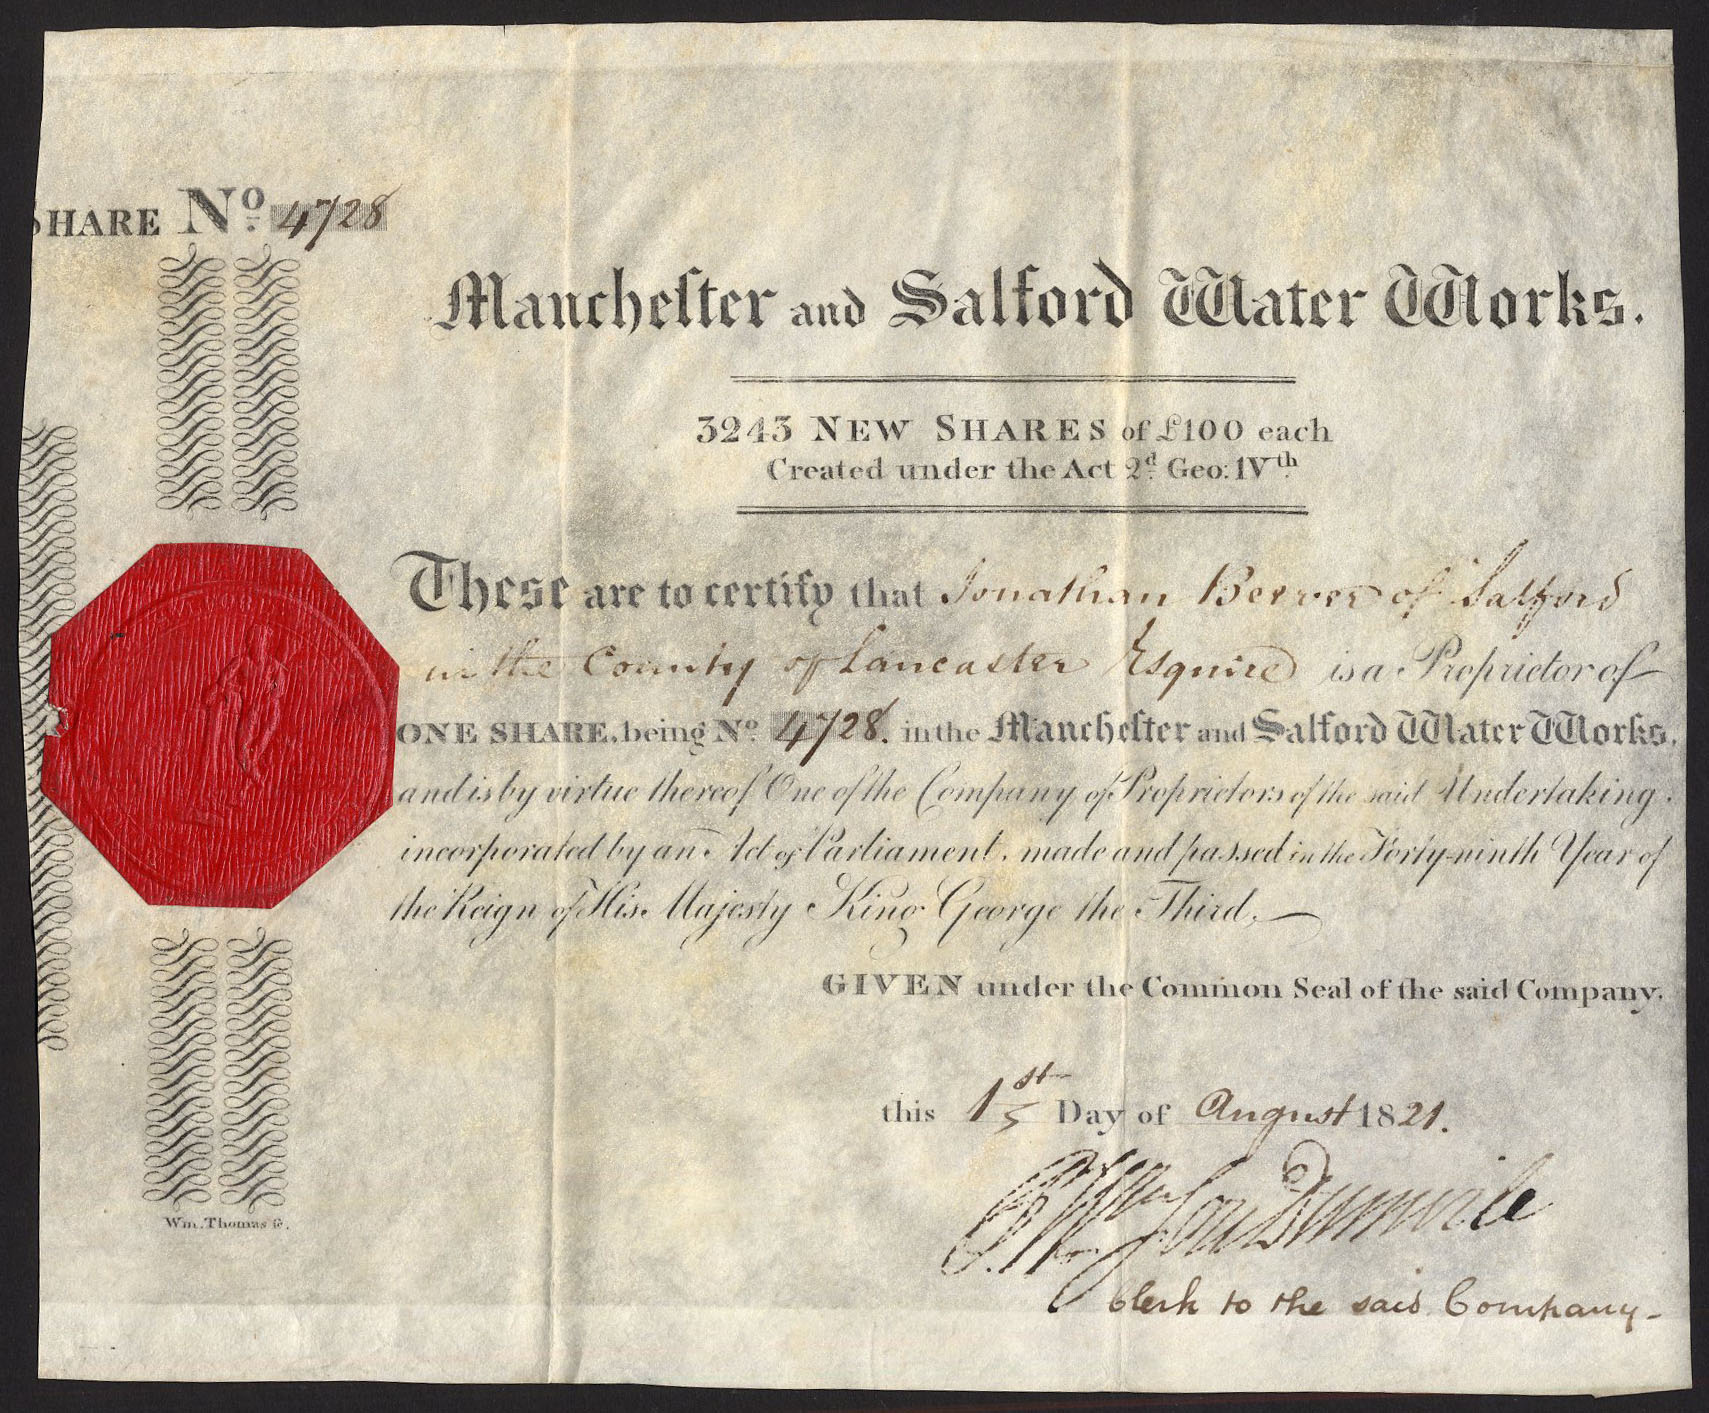 SHARE Nº 4728
Mancheſter and Salford Water Works.
3243 NEW SHARES of £100 each
Created under the Act 2d. Geo: IVth.
These are to certify that Jonathan Beever of Salford
in the County of Lancaster Esquire is a Proprietor of
ONE SHARE, being Nº. 4728. in the Mancheſter and Salford Water Works,
and is by virtue thereof One of the Company of Proprietors of the said Undertaking,
incorporated by an Act of Parliament, made and passed in the Forty-ninth Year of
the Reign of His Majesty King George the Third,
GIVEN under the Common Seal of the said Company,
this 1st Day of August 1821.
Dumvile
Clerk to the said Company
Wm. Thomas